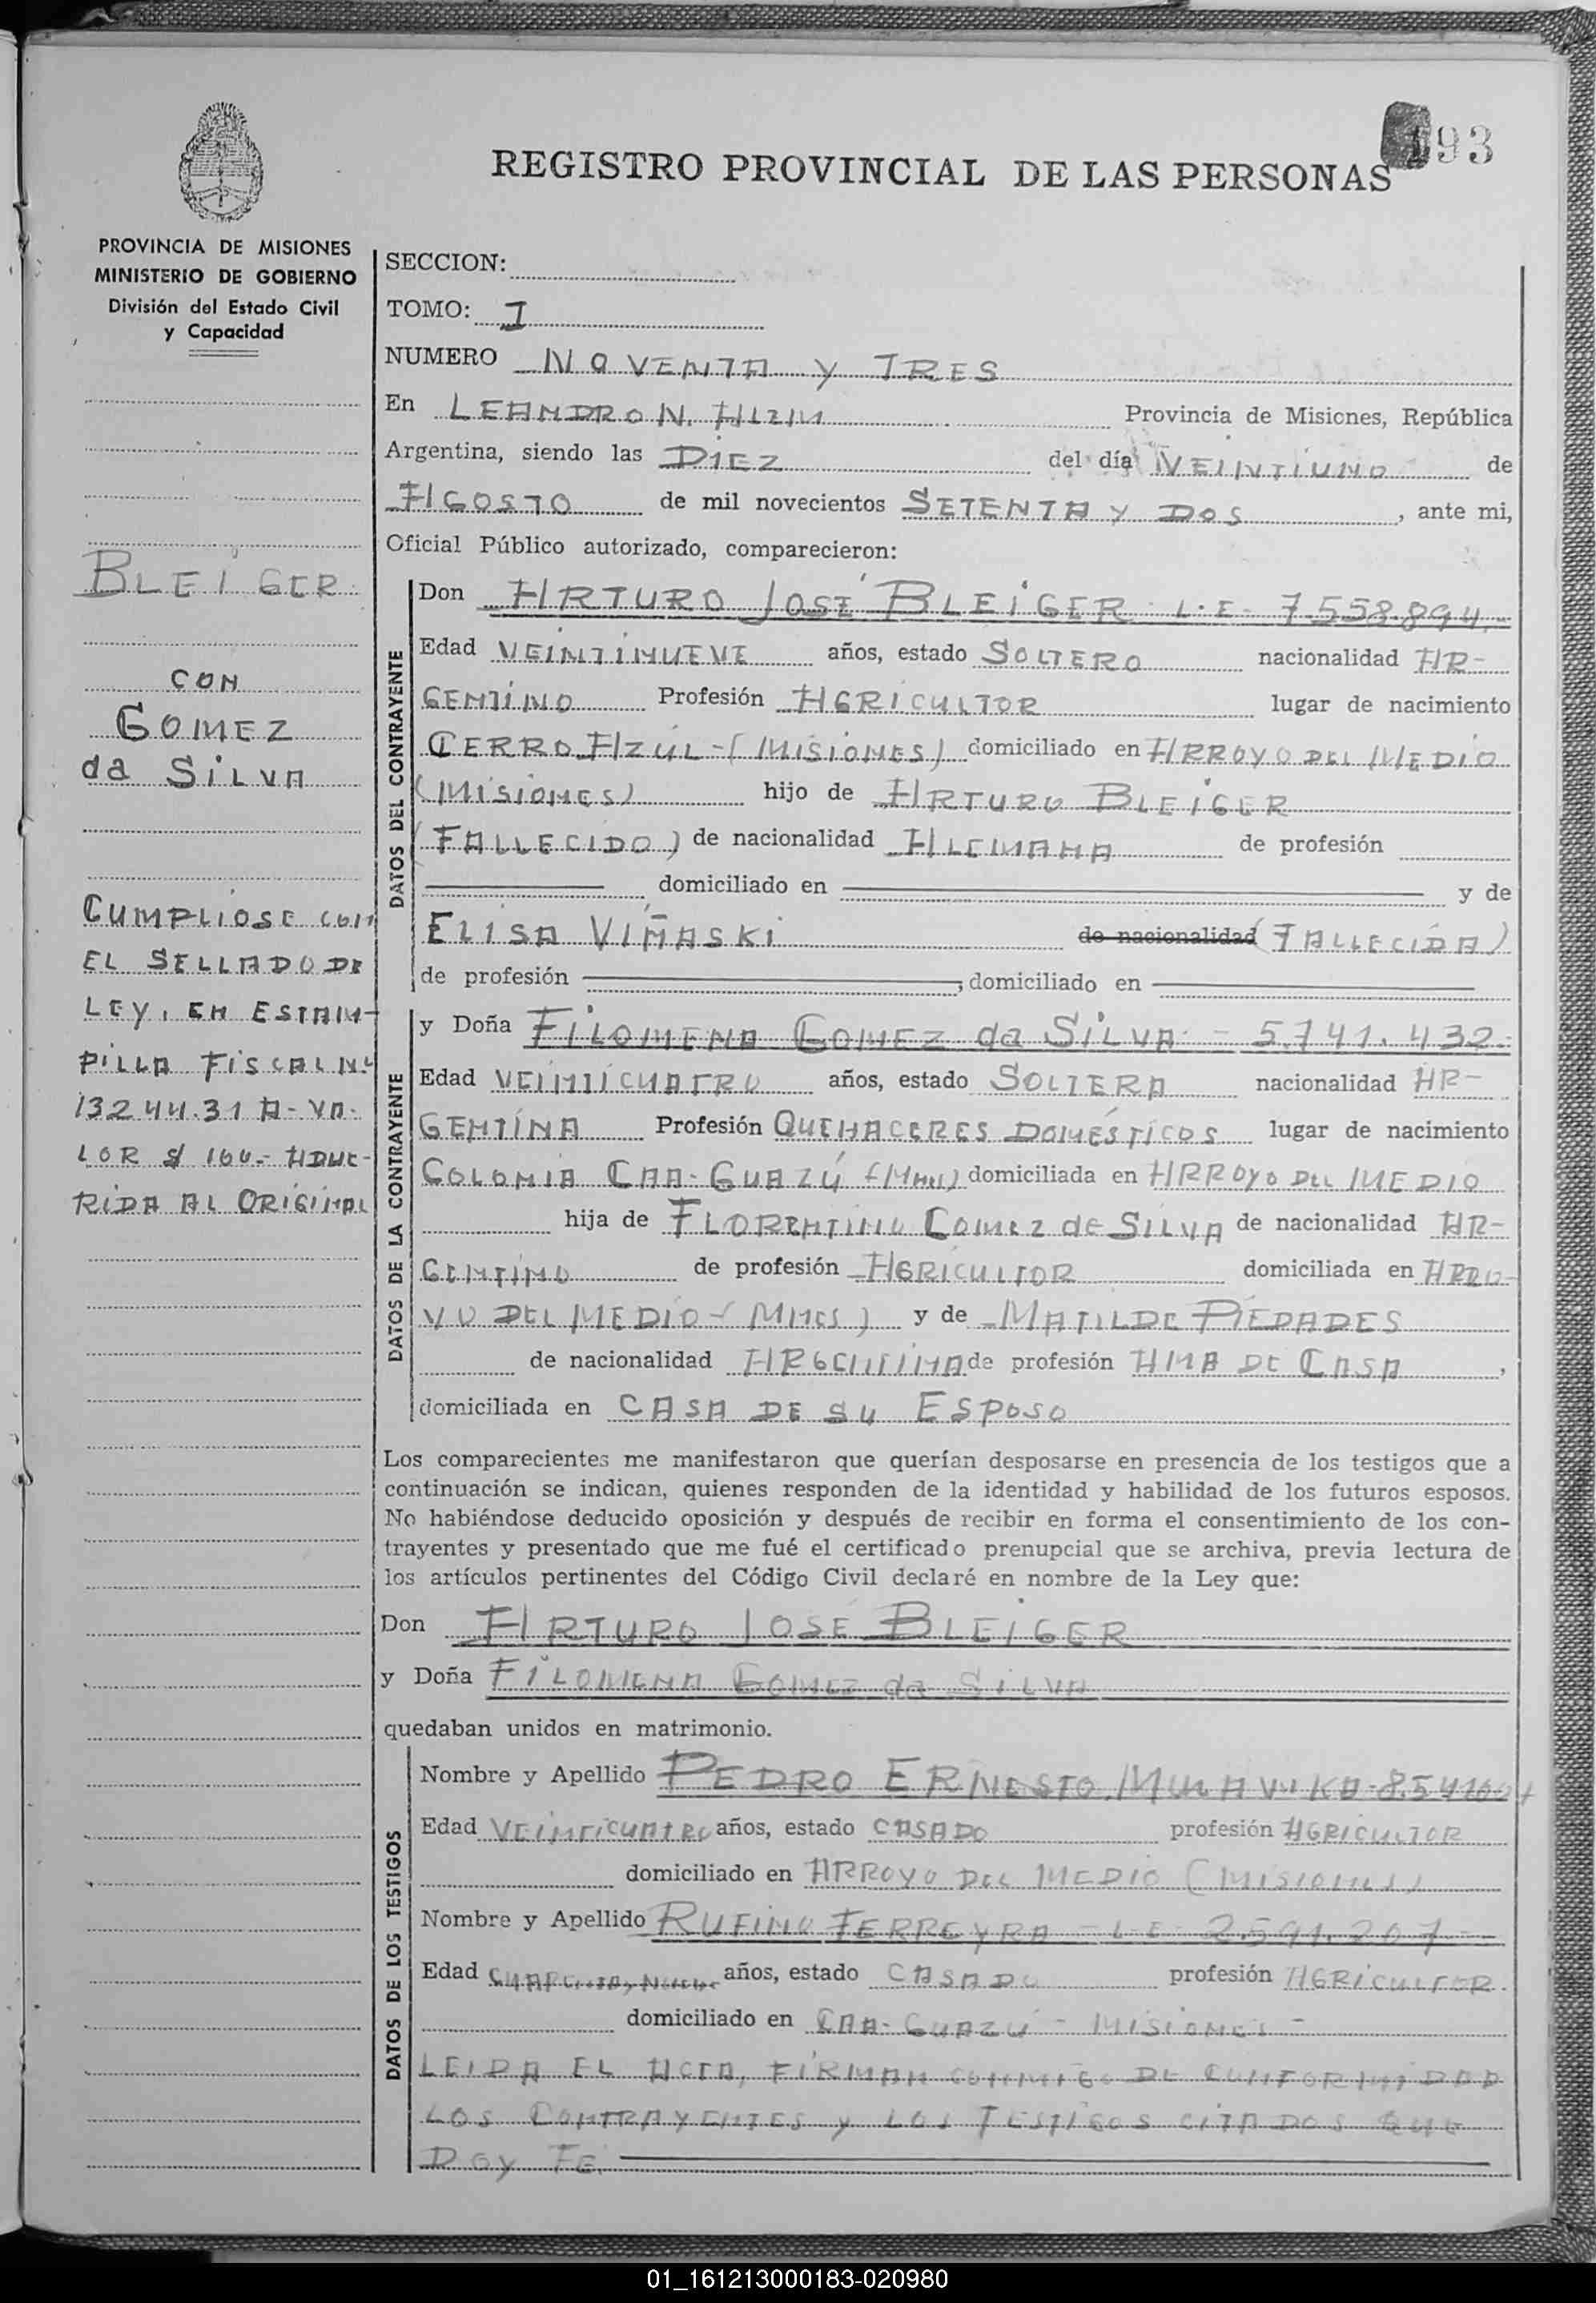 93
REGISTRO PROVINCIAL DE LAS PERSONAS
PROVINCIA DE MISIONES
MINISTERIO DE GOBIERNO
División del Estado Civil
y Capacidad
BLEIGER
CON
GOMEZ
da SILVA
CUMPLIOSE CON
EL SELLADO DE
LEY, EN ESTAM-
PILLA FISCAL Nº
1324431 A- VA-
LOR $ 100.- ADHE-
RIDA AL ORIGINAL
SECCION:
TOMO: I
NUMERO NOVENTA Y TRES
En LEANDRO N. ALEM Provincia de Misiones, República
Argentina, siendo las DIEZ del día VEINTIUNO de
AGOSTO de mil novecientos SETENTA Y DOS, ante mi,
Oficial Público autorizado, comparecieron:
DATOS DEL CONTRAYENTE
Don ARTURO JOSÉ BLEIGER L.E. 7.558.894
Edad VEINTINUEVE años, estado SOLTERO nacionalidad AR-
GENTINO Profesión AGRICULTOR lugar de nacimiento
CERRO AZUL-(MISIONES) domiciliado en ARROYO DEL MEDIO
(MISIONES) hijo de ARTURO BLEIGER
(FALLECIDO) de nacionalidad ALEMANA de profesión
domiciliado en y de
ELISA VIÑASKI de nacionalidad (FALLECIDA)
de profesión , domiciliado en
DATOS DE LA CONTRAYENTE
y Doña FILOMENA GOMEZ da SILVA - 5.741.432-
Edad VEINTICUATRO años, estado SOLTERA nacionalidad AR-
GENTINA Profesión QUEHACERES DOMÉSTICOS lugar de nacimiento
COLONIA CAA-GUAZÚ (Mnes) domiciliada en ARROYO DEL MEDIO
hija de FLORENTINO GOMEZ de SILVA de nacionalidad AR-
GENTINO de profesión AGRICULTOR domiciliada en ARRO-
YO DEL MEDIO-(MNES) y de MATILDE PIEDADES
de nacionalidad ARGENTINA de profesión AMA DE CASA,
domiciliada en CASA DE SU ESPOSO
Los comparecientes me manifestaron que querían desposarse en presencia de los testigos que a
continuación se indican, quienes responden de la identidad y habilidad de los futuros esposos.
No habiéndose deducido oposición y después de recibir en forma el consentimiento de los con-
trayentes y presentado que me fué el certificado prenupcial que se archiva, previa lectura de
los artículos pertinentes del Código Civil declaré en nombre de la Ley que:
Don ARTURO JOSÉ BLEIGER
y Doña FILOMENA GOMEZ da SILVA
quedaban unidos en matrimonio.
DATOS DE LOS TESTIGOS
Nombre y Apellido PEDRO ERNESTO
Edad VEINTICUATRO años, estado CASADO profesión AGRICULTOR
domiciliado en ARROYO DEL MEDIO (MISIONES)
Nombre y Apellido RUFINO FERREYRA - L.E. 2.591.207-
Edad CUARENTA y NUEVE años, estado CASADO profesión AGRICULTOR
domiciliado en CAA-GUAZÚ - MISIONES -
LEIDA EL ACTA, FIRMAN CONMIGO DE CONFORMIDAD
LOS CONTRAYENTES y LOS TESTIGOS CITADOS QUE
DOY FE.
01_161213000183-020980